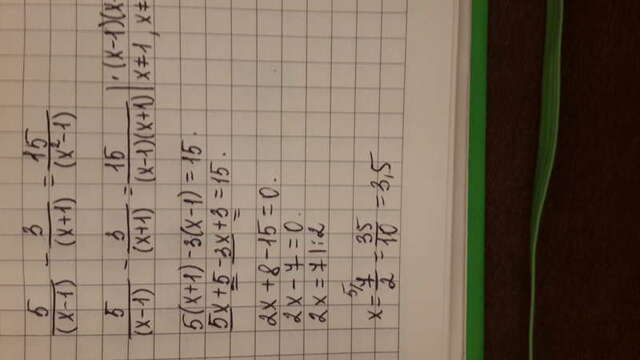 5/(x-1) - 3/(x+1) = 15/(x²-1)
5/(x-1) - 3/(x+1) = 15/(x-1)(x+1) | ·(x-1)(x
x≠1, x≠
5(x+1) -3(x-1) = 15.
5x+5-3x+3=15.
2x+8-15=0.
2x-7=0.
2x=7|:2
x= ⁵/7/2 = 35/10 = 3,5